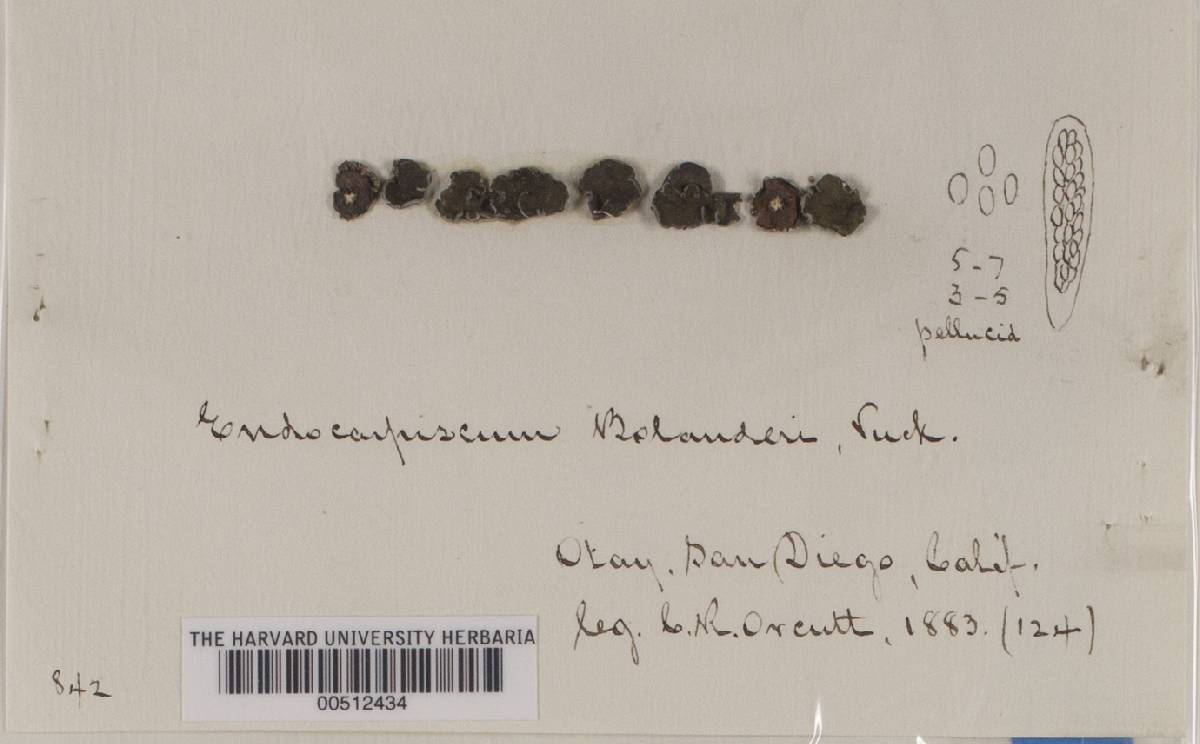 5-7
3-5
pellucid
Endocarpiscum Bolanderi, Tuck.
Otay, San Diego, Calif.
leg. C.R. Orcutt, 1883. (124)
THE HARVARD UNIVERSITY HERBARIA
00512434
842